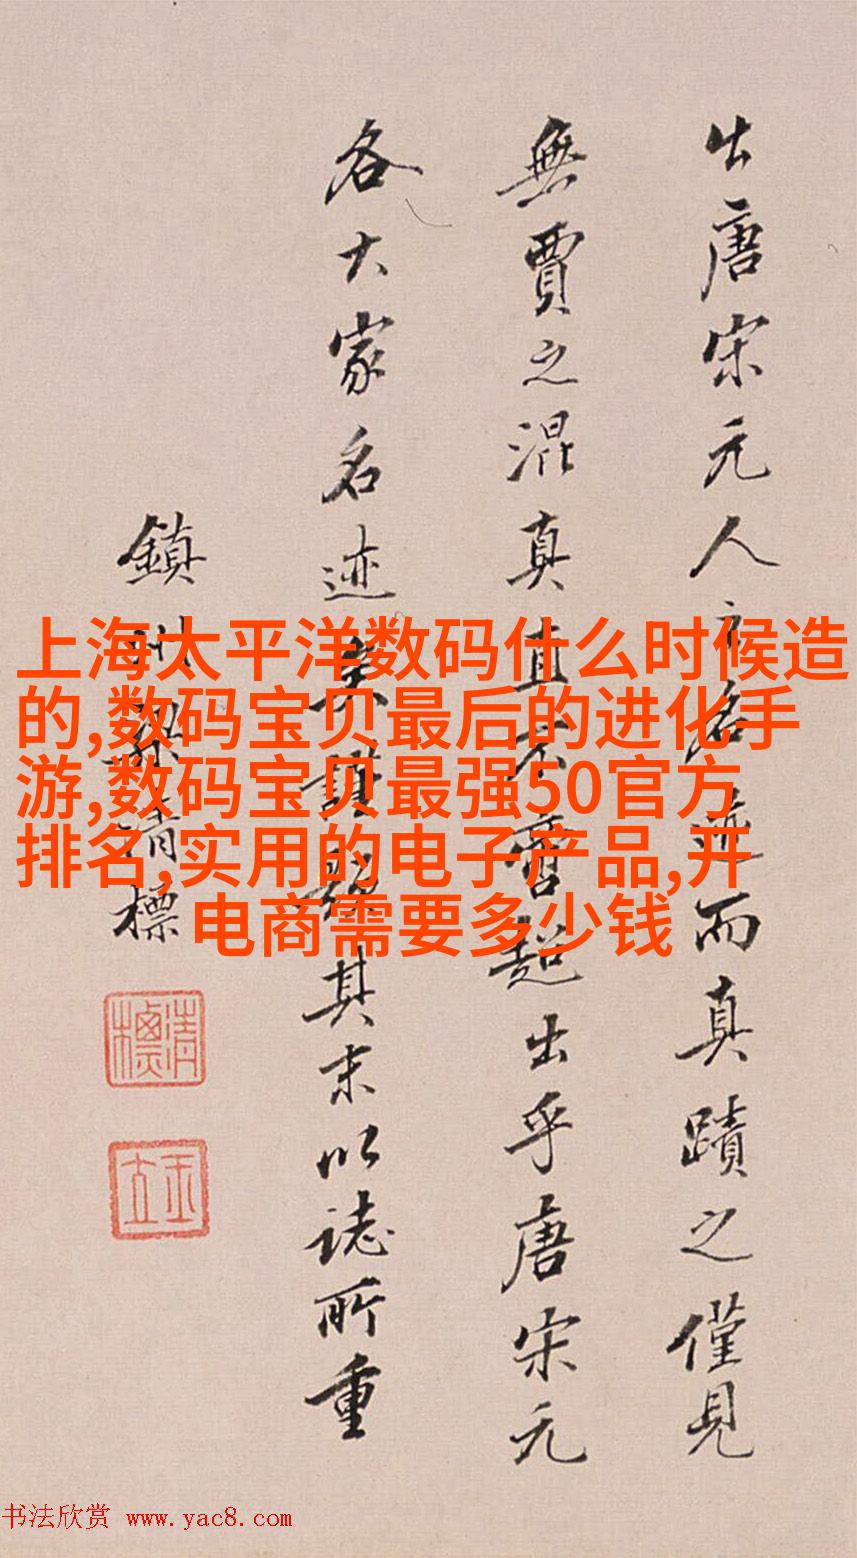 出唐宋元人之名迹而真蹟之僅見
無賈之混真直不啻超出乎唐宋元
各大家名迹矣謹題其末以誌所重
鎮州梁清標
清標
玉立
上海太平洋数码什么时候造
的,数码宝贝最后的进化手
游,数码宝贝最强50官方
排名,实用的电子产品,开
电商需要多少钱
书法欣赏 www.yac8.com